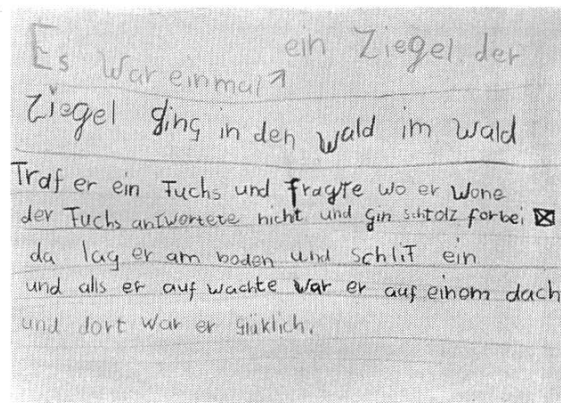 Es war einmal ein Ziegel der
Ziegel ging in den wald im wald
Traf er ein Fuchs und fragte wo er wone
der Fuchs antwortete nicht und gin schtolz forbei
da lag er am boden und schlif ein
und als er auf wachte war er auf einom dach
und dort war er glüklich.